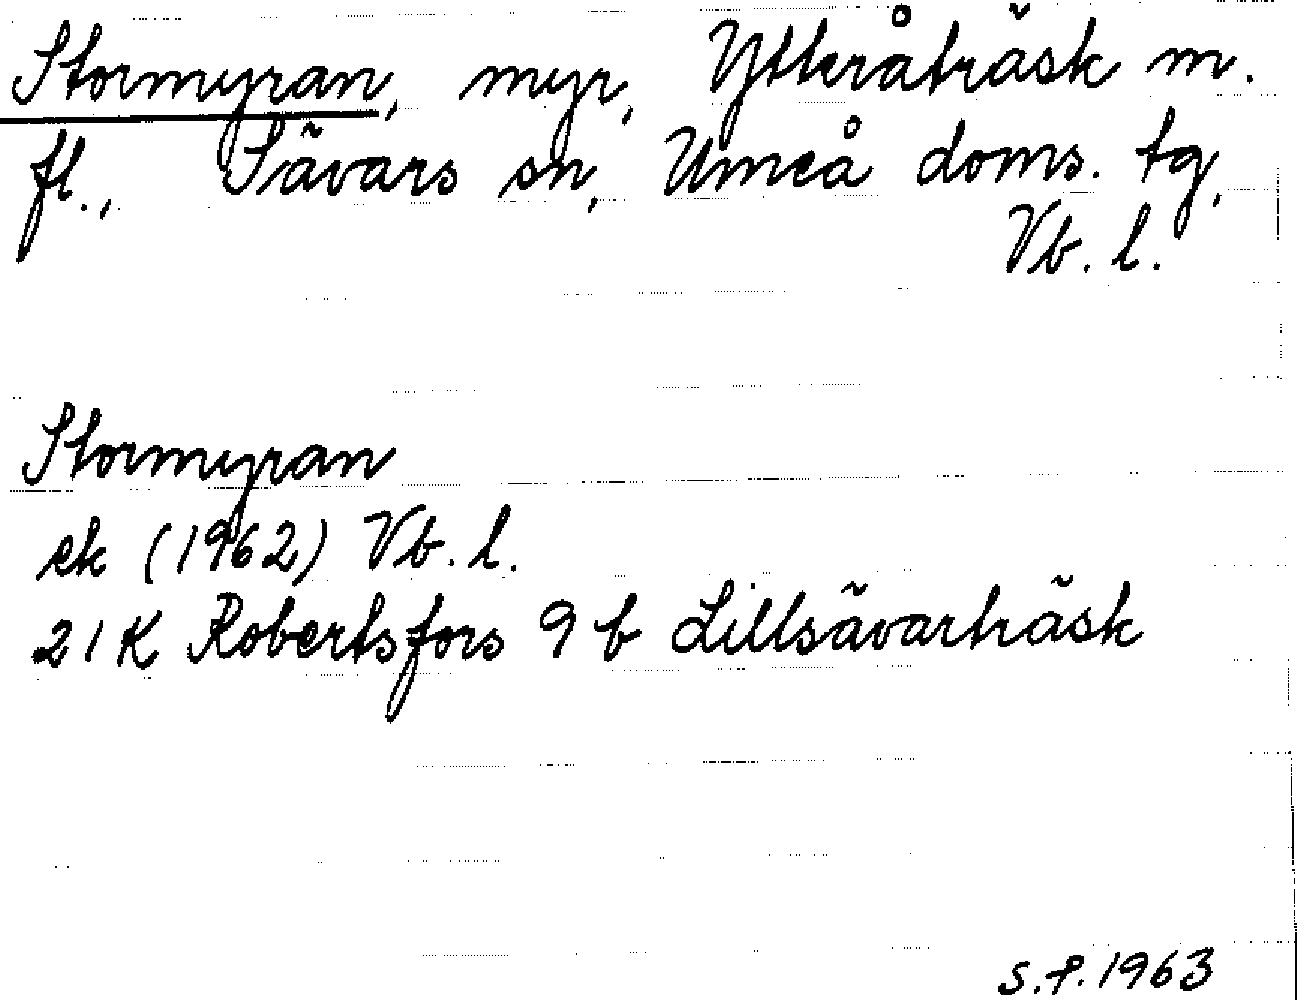 Stormyran, myr, Ytteråträsk m.
fl., Sävars sn, Umeå doms. tg,
Vb. l.
Stormyran
ek (1962) Vb. l.
21K Robertsfors 9 b Lillsävarträsk
S.F. 1963